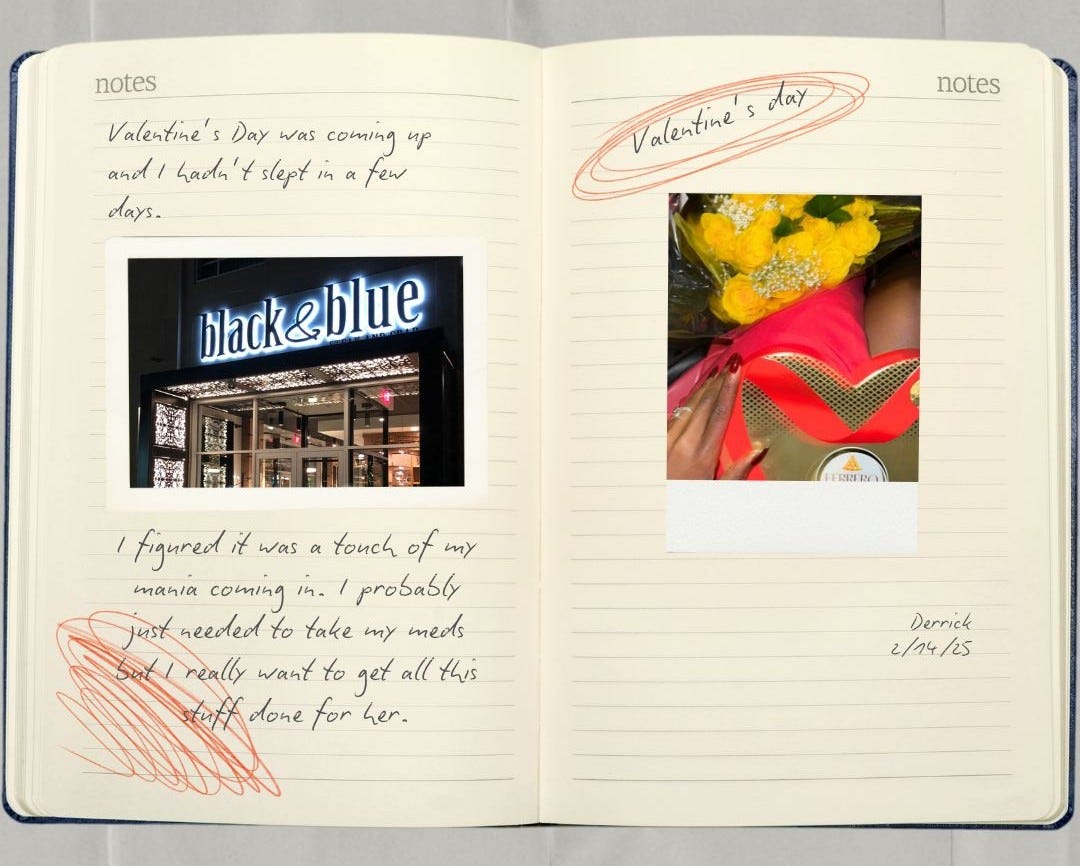 notes
Valentine's Day was coming up
and I hadn't slept in a few
days.
black & blue
I figured it was a touch of my
mania coming in. I probably
just needed to take my meds
but I really want to get all this
stuff done for her.
notes
Valentine's day
FERRERO
Derrick
2/14/25